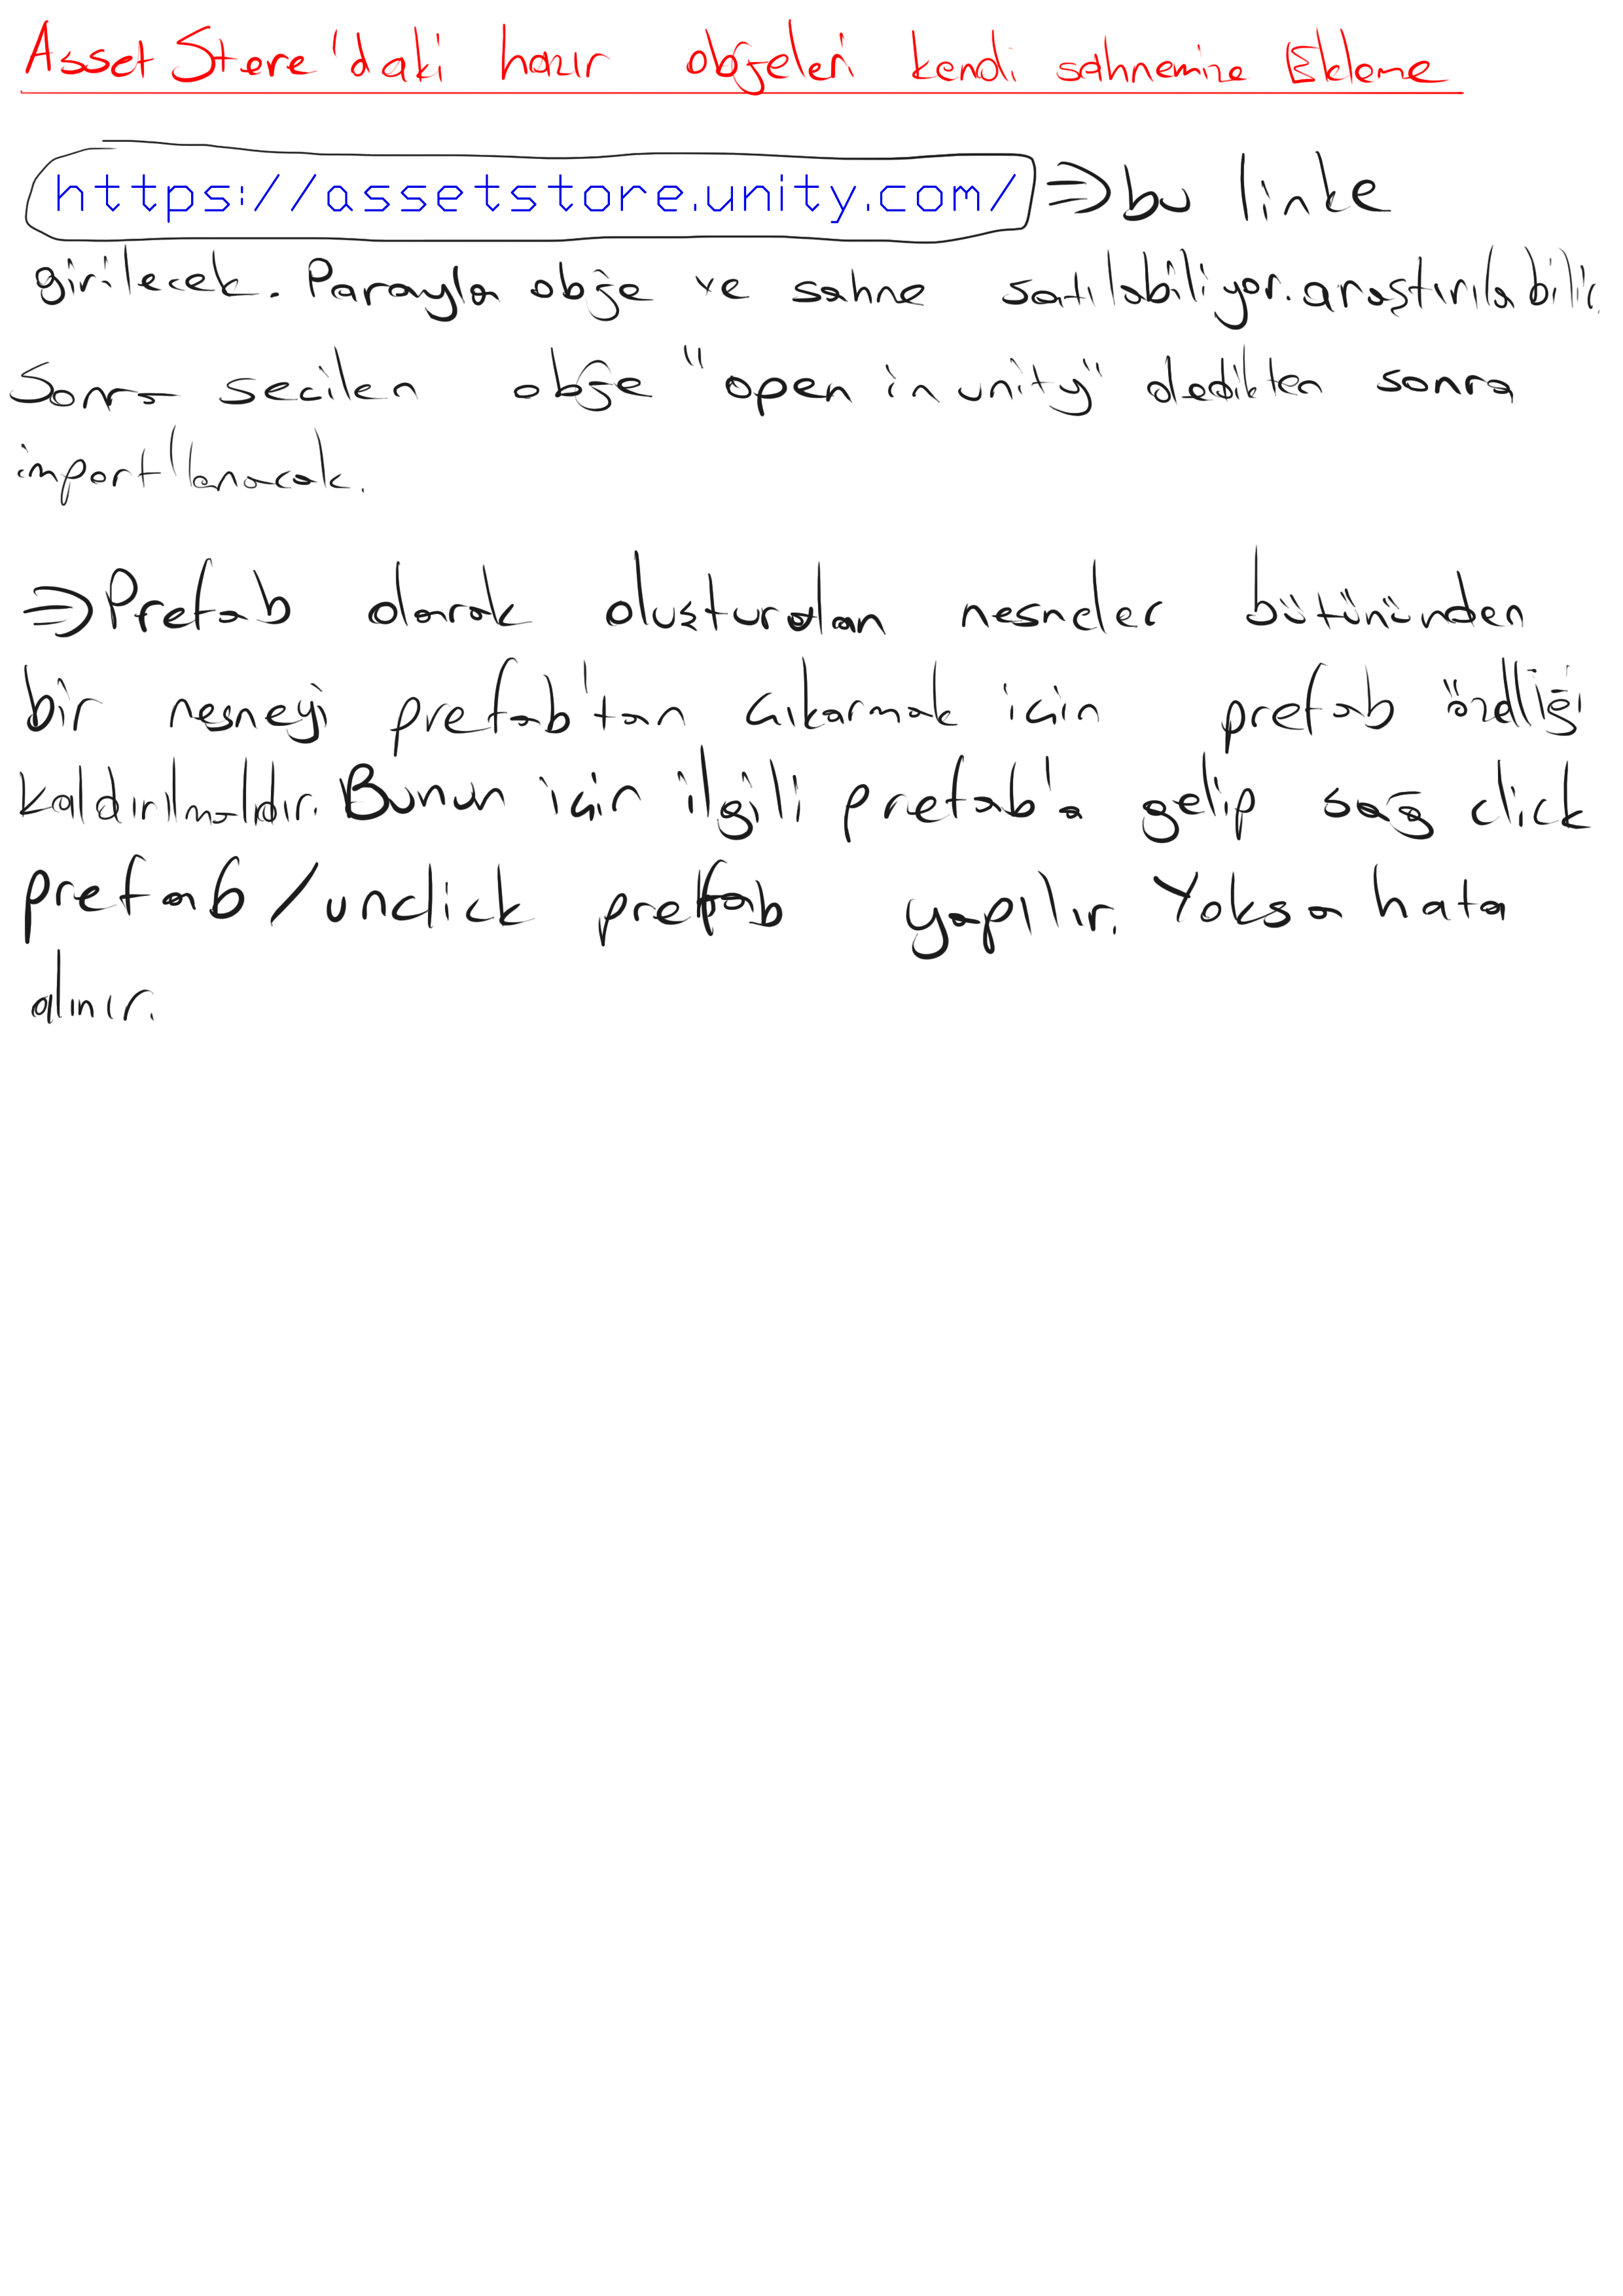 Asset Store'daki hazır objeleri kendi sahnemize Ekleme
https://assetstore.unity.com/ ⇒ bu linke
girilecek. Parayla obje ve sahne satılabiliyor. araştırılabilir.
Sonra secilen obje "open in unity" dedikten sonra
import'lanacak.
⇒ Prefab olarak oluşturulan nesneler bütününden
bir nesneyi prefab'tan çıkarmak için prefab özelliği
kaldırılmalıdır. Bunun için ilgili prefab'a gelip sağ click
prefab/unclick prefab yapılır. Yoksa hata
alınır.